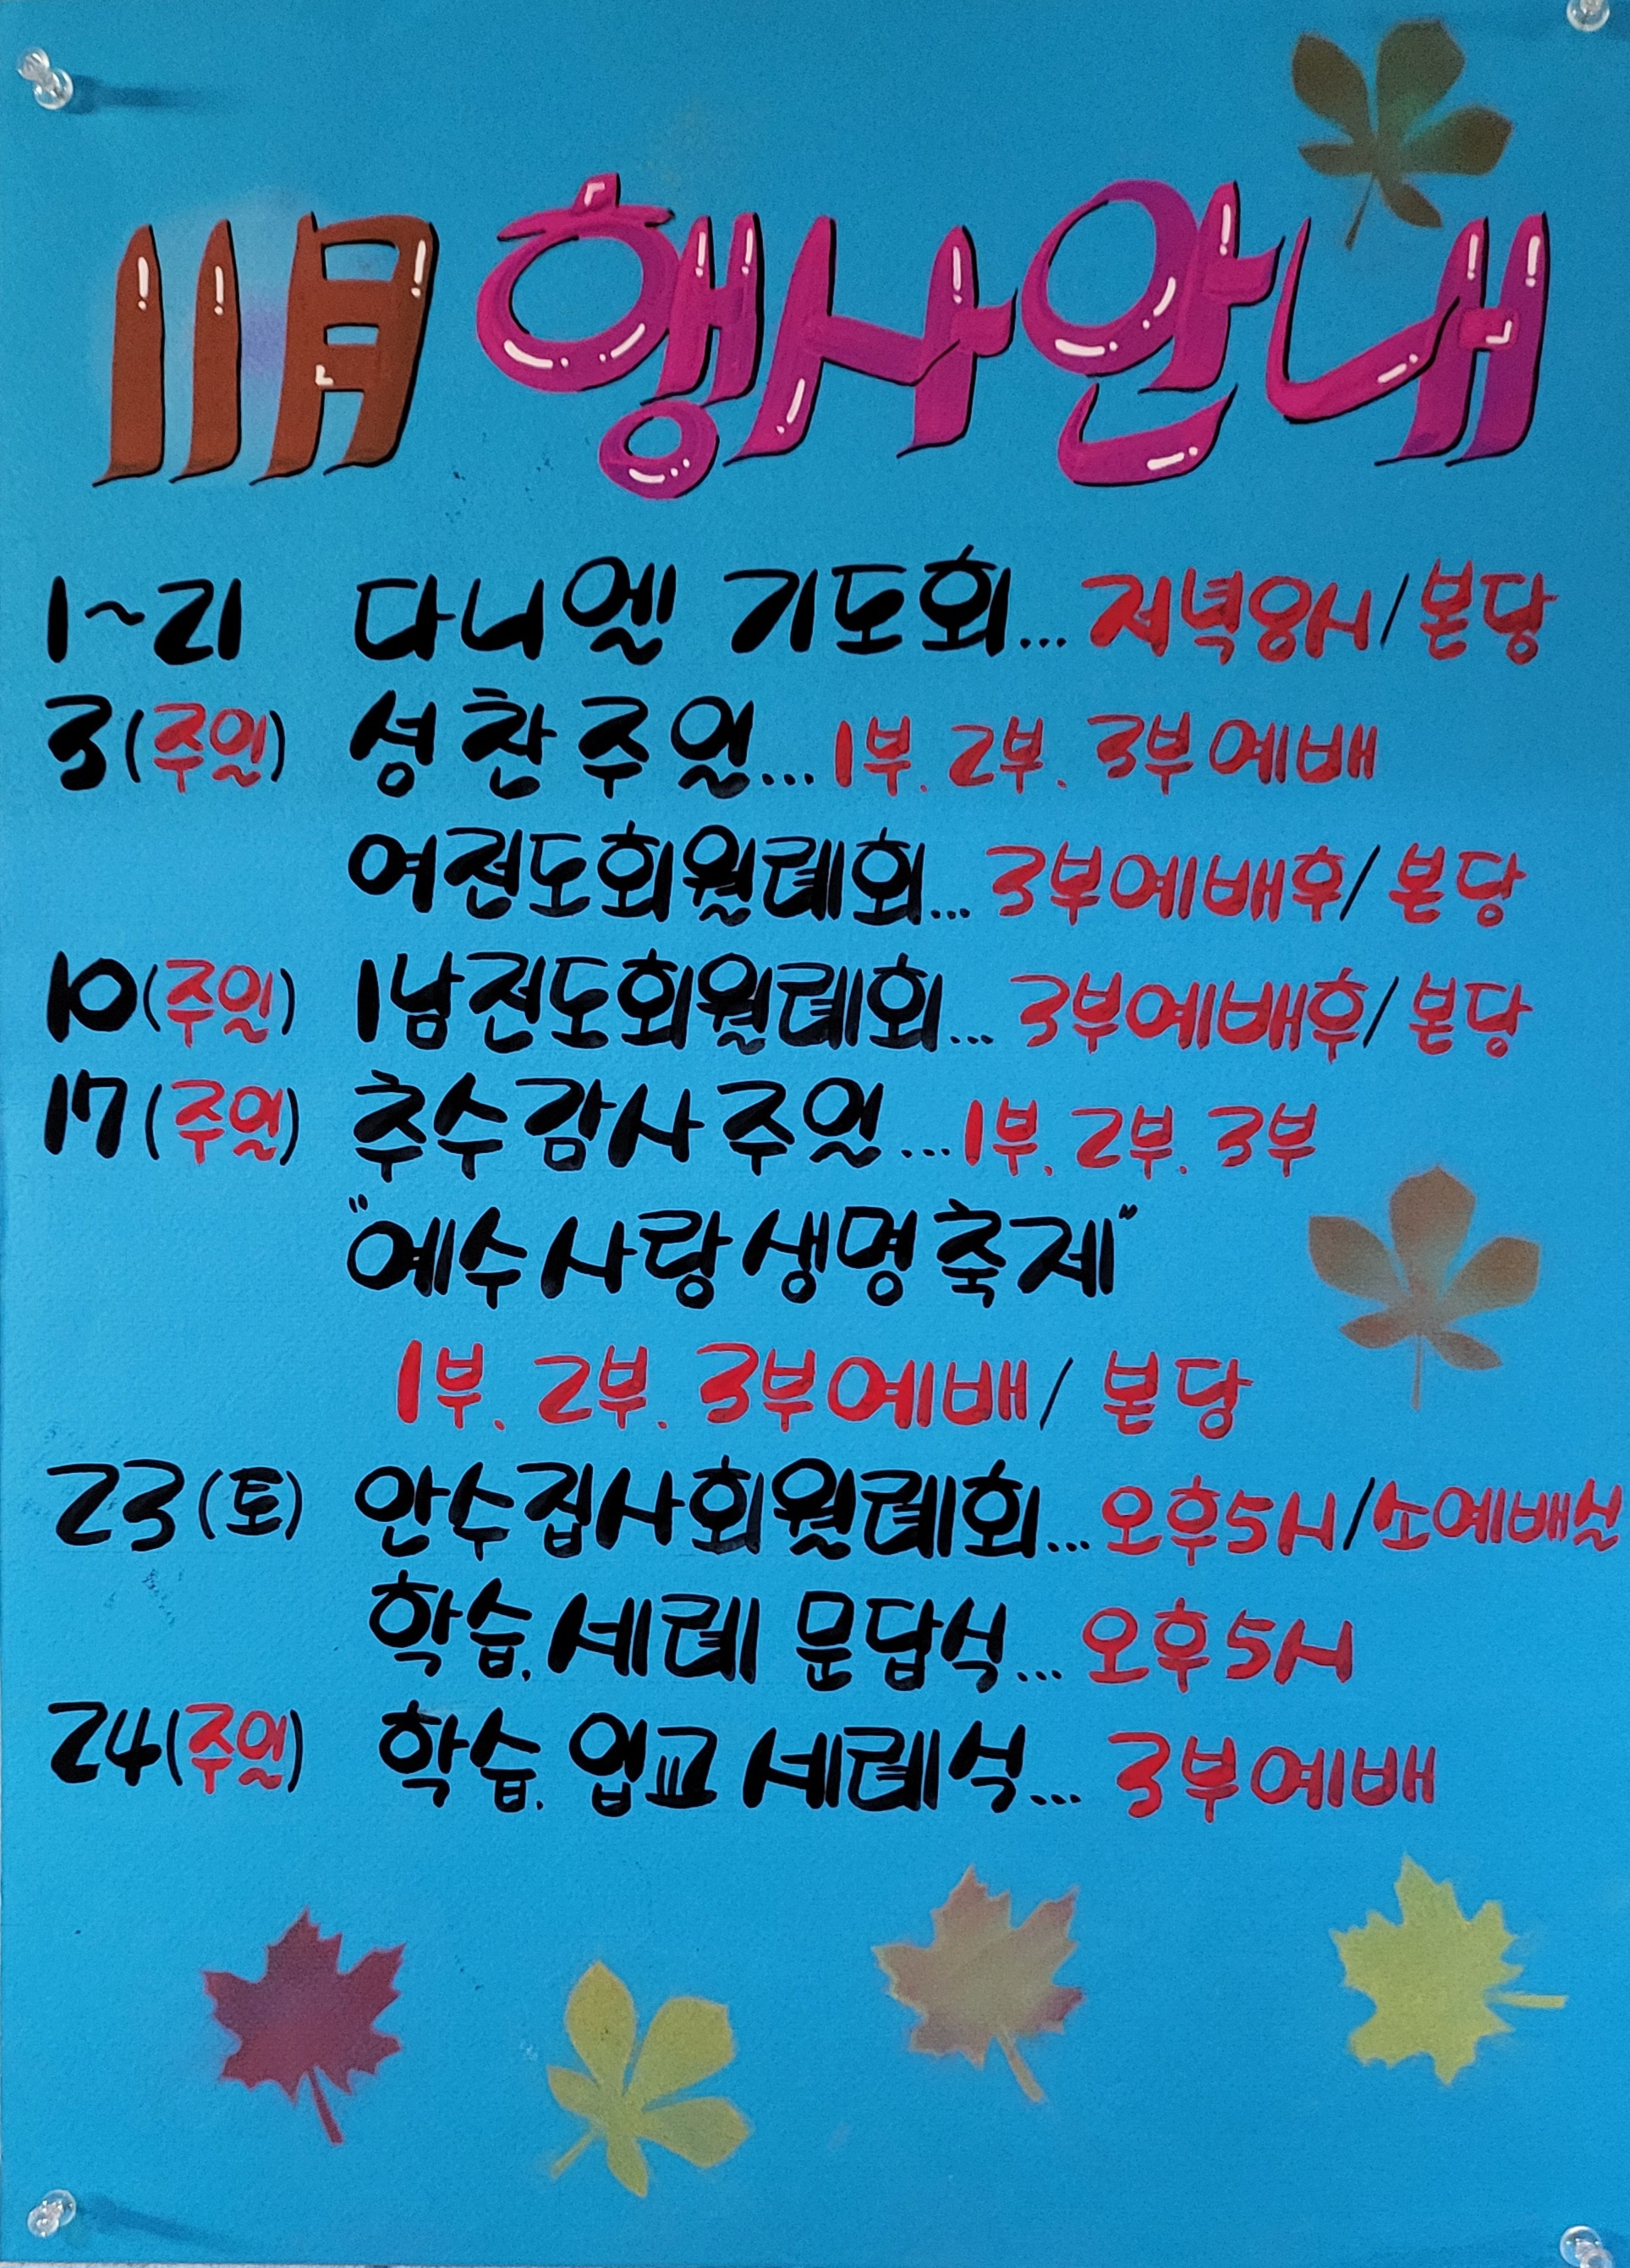 11月 행사안내
1~21 다니엘 기도회... 저녁8시/본당
3(주일) 성찬주일... 1부. 2부. 3부예배
여전도회월례회... 3부예배후/본당
10(주일) 1남전도회월례회... 3부예배후/본당
17(주일) 추수감사주일... 1부. 2부. 3부
"예수사랑생명축제"
1부. 2부. 3부예배/ 본당
23(토) 안수집사회월례회... 오후5시/소예배실
학습.세례 문답식... 오후5시
24(주일) 학습. 입교 세례식... 3부예배